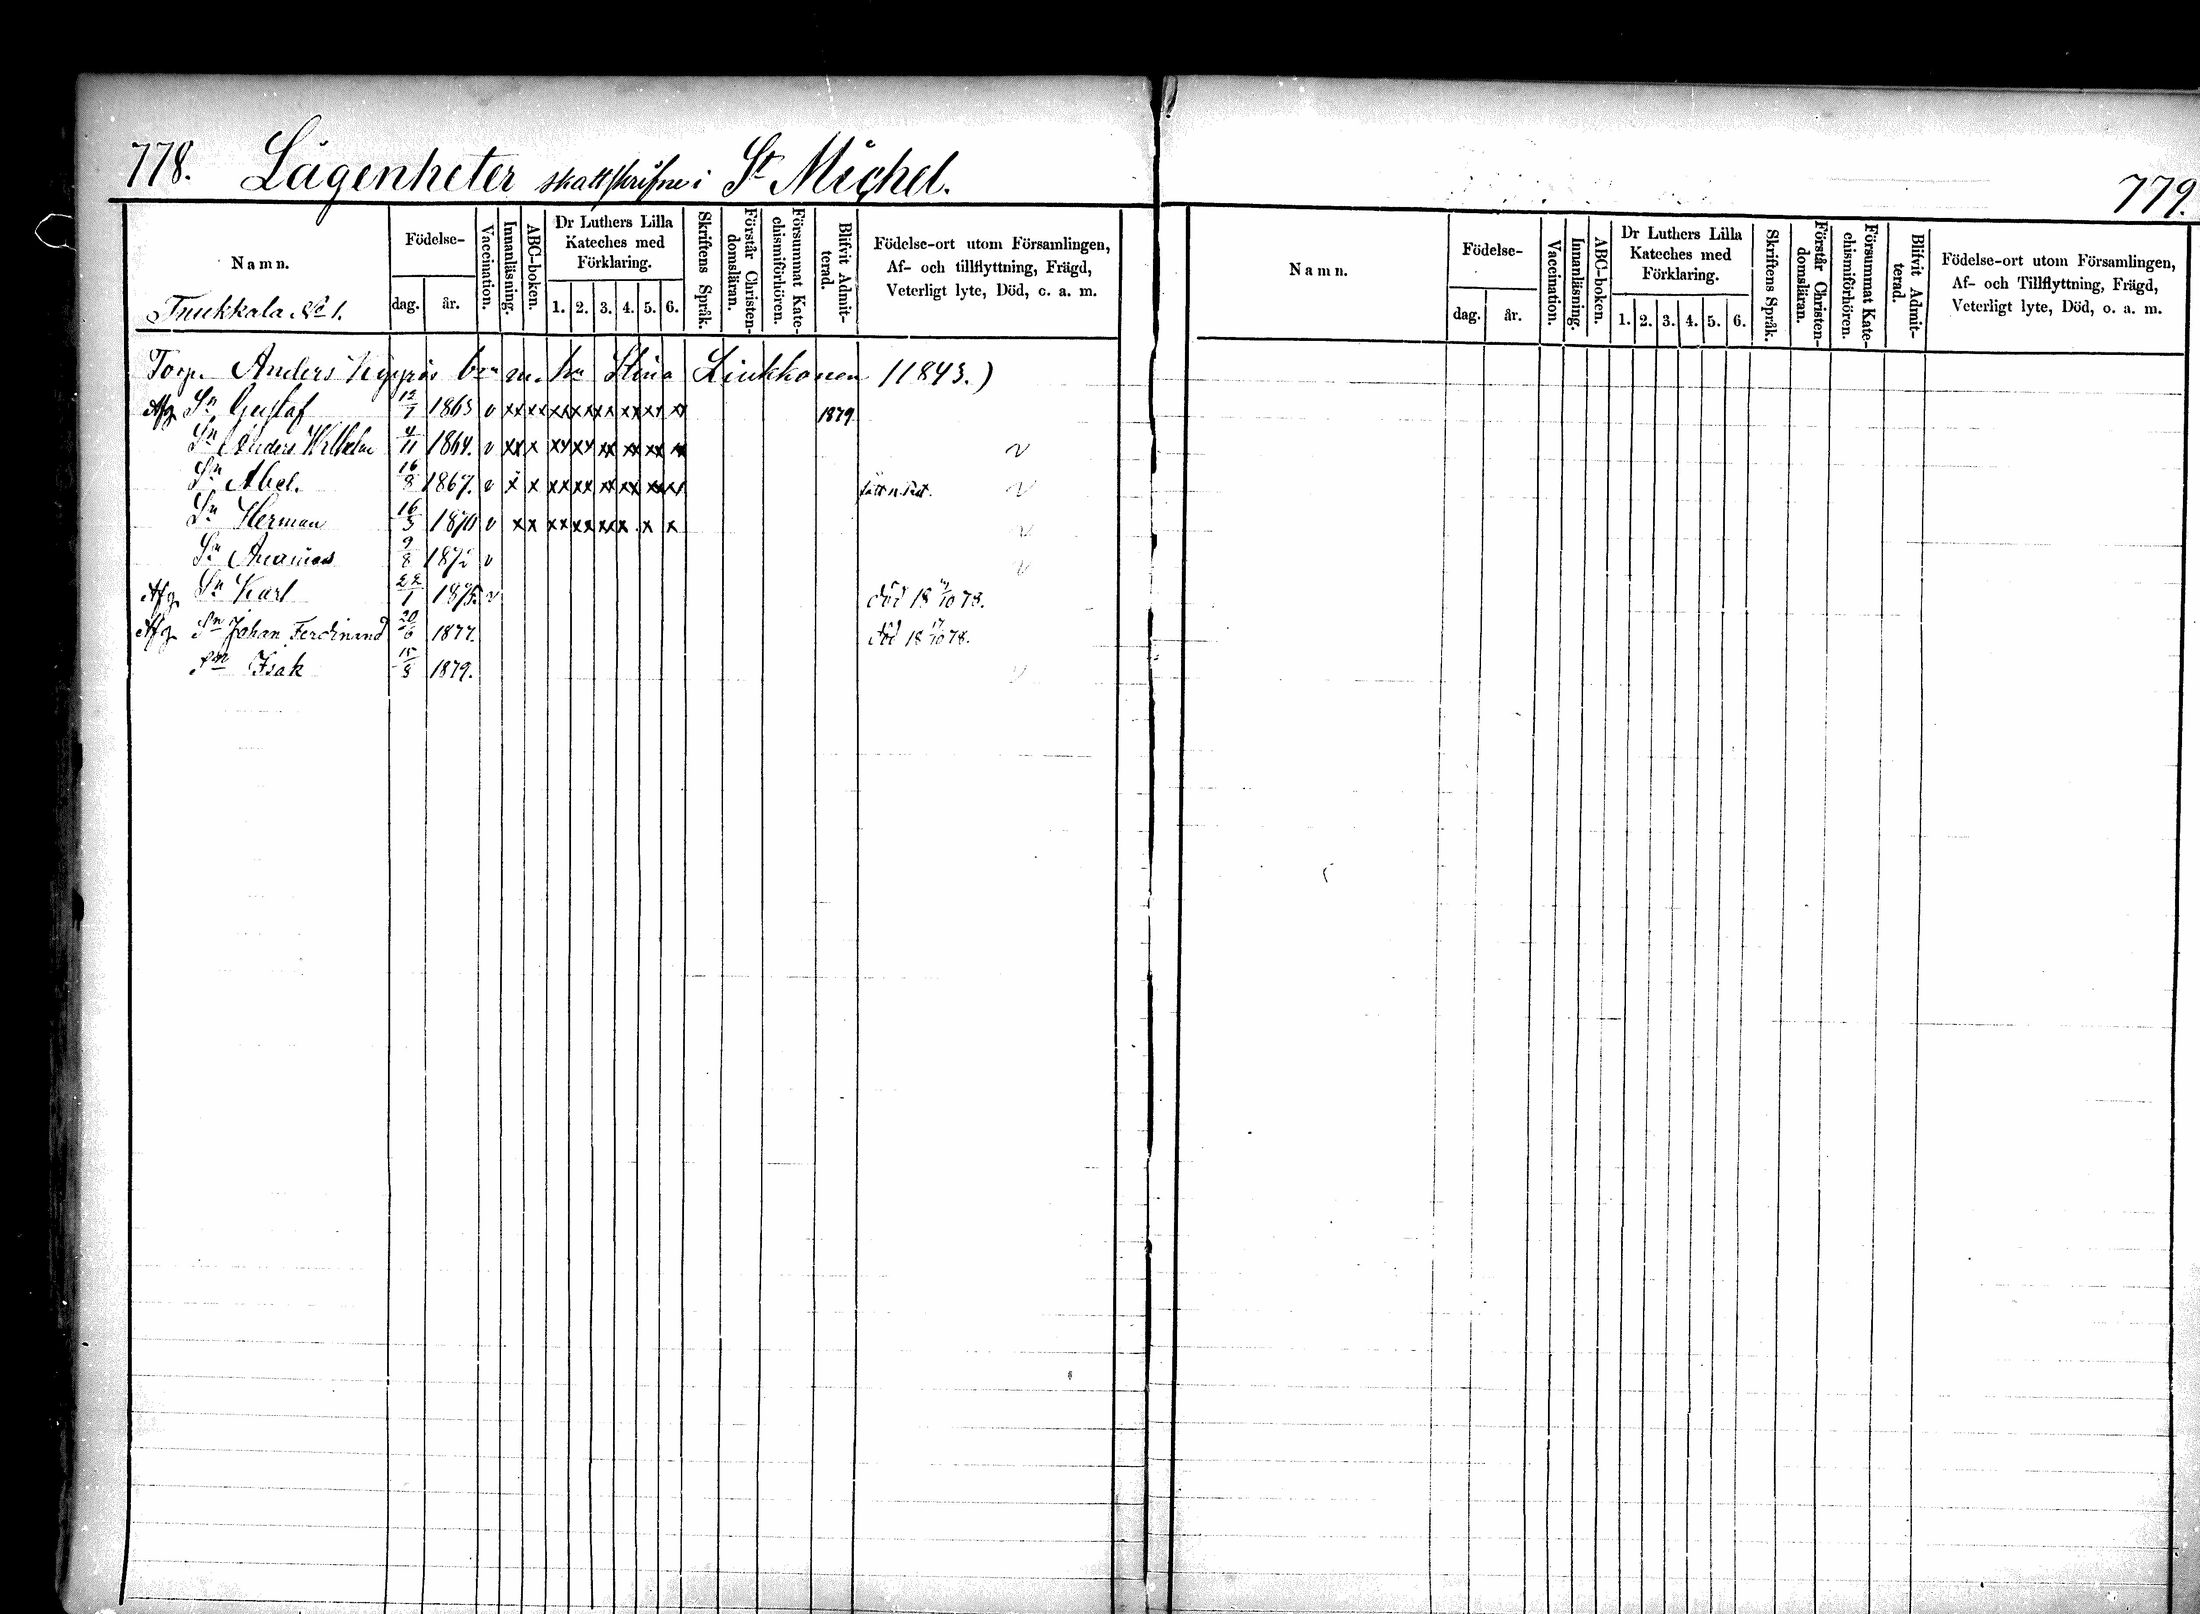 778. Lägenheter skattskrifne i St Michel.
779.
Namn.
Födelse-
dag. år.
Vaccination.
Innanläsning.
ABC-boken.
Dr Luthers Lilla
Kateches med
Förklaring.
1. 2. 3. 4. 5. 6.
Skriftens Språk.
Förstår Christen-
domsläran.
Försummat Kate-
chismiförhören.
Blifvit Admit-
terad.
Födelse-ort utom Församlingen,
Af- och tillflyttning, Frägd,
Veterligt lyte, Död, o. a. m.
Tuukkala № 1.
Torp. Anders barn m. hu Stina Liukkonen (1843.)
Afg Sn Gustaf 12/7 1863 v xx xx xx xx xx xx xx xx 1879
Sn Anders Wilhelm 4/11 1864. v xx x xx xx xx xx xx xx v
Sn Abel. 16/8 1867. v x x xx xx xx xx xx xx v
Sn Herman 16/3 1870 v x x xx xx xx x x x v
Sn Ananias 9/8 1872 v v
Afg Sn Karl 22/1 1875. v död 18 /10 78.
Afg Sn Johan Ferdinand 20/6 1877. död 18 17/10 78.
Sn Isak 15/8 1879. v
Namn.
Födelse-
dag. år.
Vaccination.
Innanläsning.
ABC-boken.
Dr Luthers Lilla
Kateches med
Förklaring.
1. 2. 3. 4. 5. 6.
Skriftens Språk.
Förstår Christen-
domsläran.
Försummat Kate-
chismiförhören.
Blifvit Admit-
terad.
Födelse-ort utom Församlingen,
Af- och Tillflyttning, Frägd,
Veterligt lyte, Död, o. a. m.